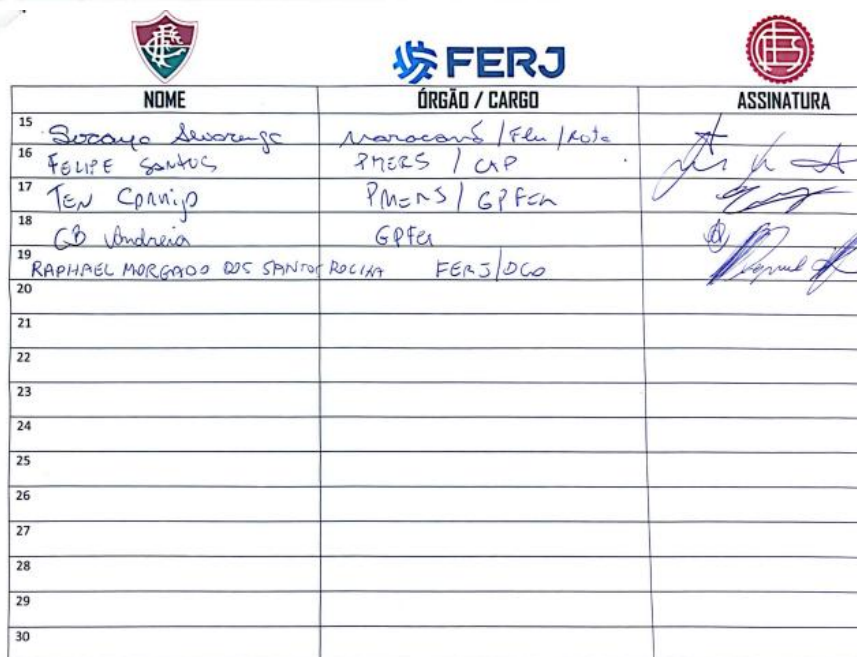 FERJ
NOME ÓRGÃO / CARGO ASSINATURA
15 Soraya Alvarenga Maracanã / Flu / Rota
16 FELIPE SANTOS PMERJ /
17 TEN PMERJ / GPFer
18 CB Andreia GPFer
19 RAPHAEL MORGADO DOS SANTOS ROCHA FERJ/DCO
20
21
22
23
24
25
26
27
28
29
30